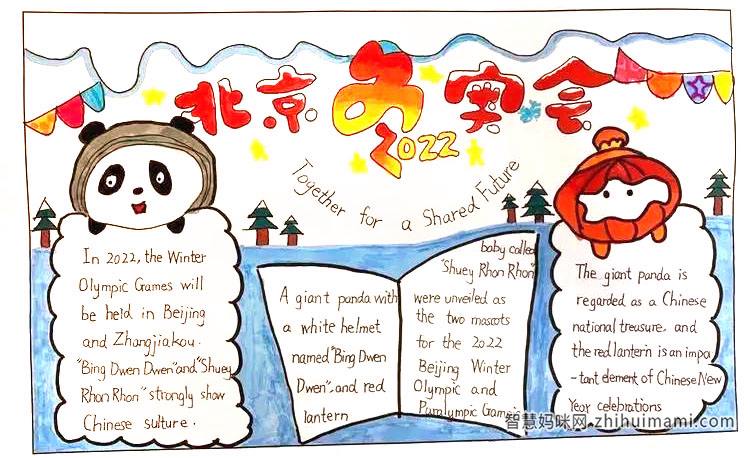 北京冬奥会
2022
Together for a Shared Future
In 2022, the Winter
Olympic Games will
be held in Beijing
and Zhangjiakou.
"Bing Dwen Dwen" and "Shuey
Rhon Rhon" strongly show
Chinese sulture.
A giant panda with
a white helmet
named "Bing Dwen
Dwen", and red
lantern
baby called
"Shuey Rhon Rhon"
were unveiled as
the two mascots
for the 2022
Beijing Winter
Olympic and
Paralympic Games
The giant panda is
regarded as a Chinese
national treasure. and
the red lantern is an impo
-tant element of Chinese New
Year celebrations
智慧妈咪网.zhihuimami.com